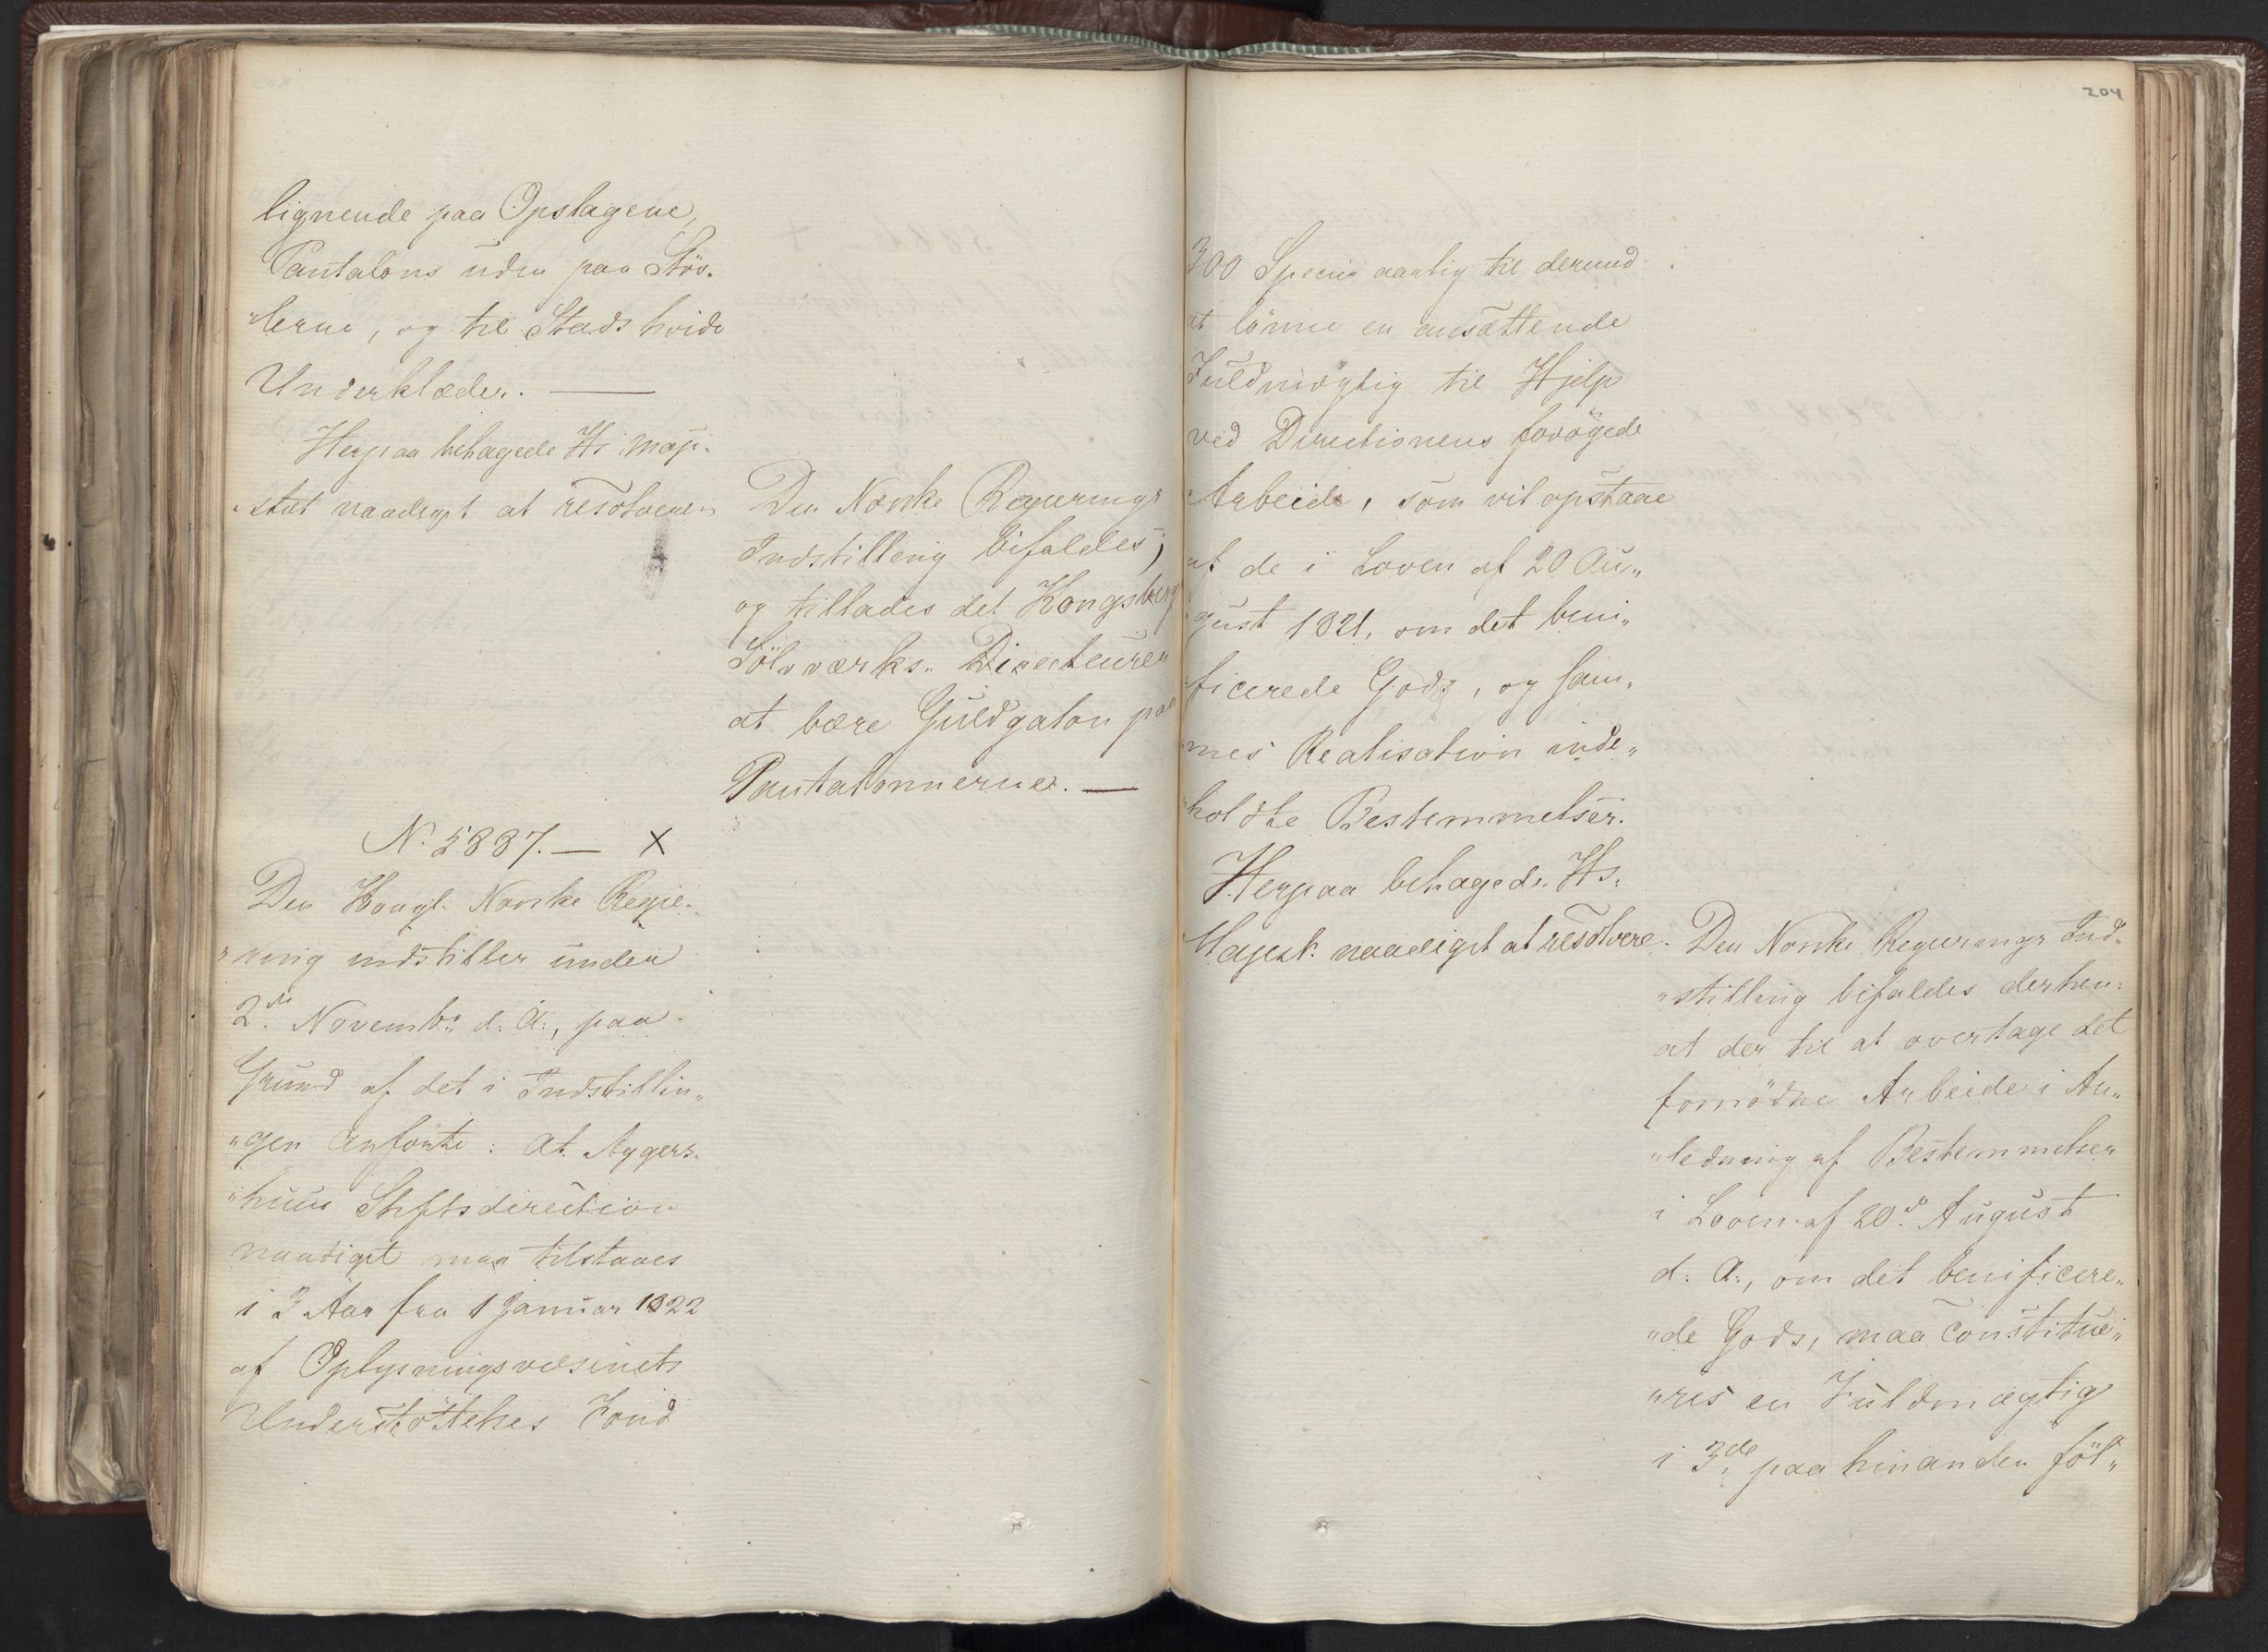 lignende paa Opslagene,
Pantalons uden paa Støv-
„lerne, og til Stads hvide
Underklæder. —
Herpaa behagede Hs Maje-
„stæt naadigst at resolvere:
Den Norske Regjerings
Indstilling bifaldes;
og tillades det Kongsberg
Sölvværks Directeuren
at bære Guldgalon paa
Pantalonnerne. —
N. 5887. — X
Den Kongl. Norske Regje-
„ring indstiller under
2de Novembr d: A:, paa
Grund af det i Indstillin„
„gen anførte: At Aggers-
„huus Stiftsdirection
naadigst maa tilstaaes
i 3 Aar fra 1 Januar 1822
af Oplysningsvæsenets
Understøttelses Fond
204
300 Species aarlig til dermed
at lønne en ansættende
Fuldmægtig til Hjelp
ved Directionens forøgede
Arbeide, som vil opstaae
af de i Loven af 20 Au„
gust 1821, om det beni„
ficerede Gods, og sam„
mes Realisation inde„
holdte Bestemmelser.
Herpaa behagede Hs:
Majest: naadigst at resolvere.
Den Norske Regjerings Ind„
„stilling bifaldes derhen:
at der til at overtage det
fornødne Arbeide i An„
„ledning af Bestemmelser
i Loven af 20de August
d: A:, om det benificere„
„de Gods, maa constitue„
„res en Fuldmægtig
i 3de paa hinanden føl„